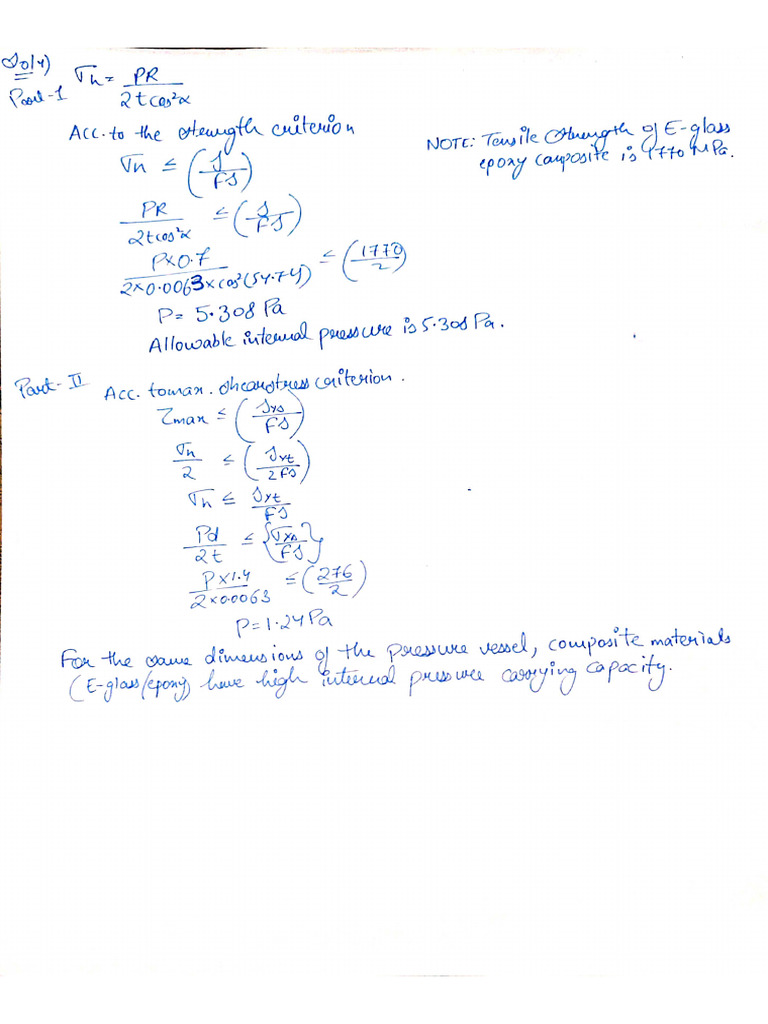 Sol4)
Part-1 σn = PR / 2tcos²α
Acc. to the strength criterion
NOTE: Tensile strength of E-glass
epoxy composite is 1770 MPa.
σn ≤ (S / FS)
PR / 2tcos²α ≤ (S / FS)
P×0.7 / 2×0.0063×cos²(54.74) ≤ (1770 / 2)
P = 5.308 Pa
Allowable internal pressure is 5.308 Pa.
Part-II Acc. to max. shear stress criterion.
Zmax ≤ (Sys / FS)
σn / 2 ≤ (Syt / 2FS)
σn ≤ Syt / FS
Pd / 2t ≤ { / FS}
P×1.4 / 2×0.0063 ≤ (276 / 2)
P = 1.24 Pa
For the same dimensions of the pressure vessel, composite materials
(E-glass/epoxy) have high internal pressure carrying capacity.